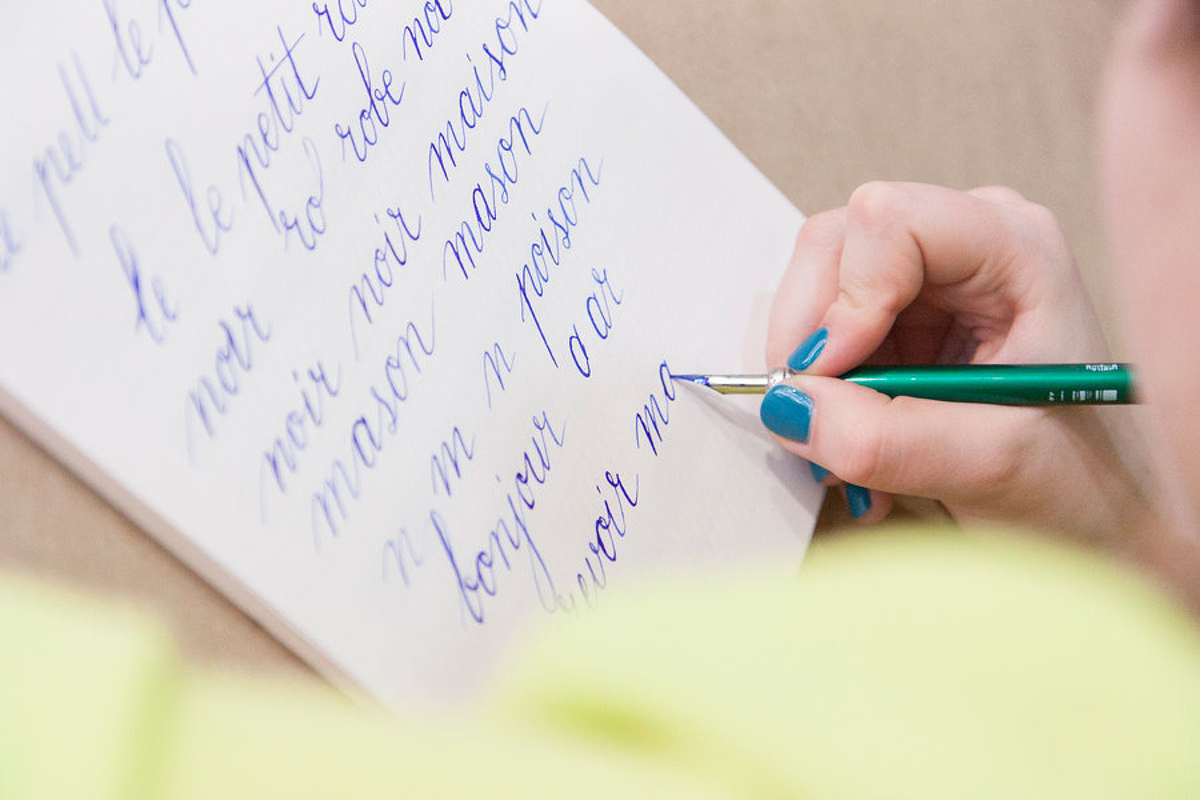 pell le p
le le petit ro
noir ro robe noi
noir noir maison
mason mason
n m n poison
bonjour a ar
evoir ma